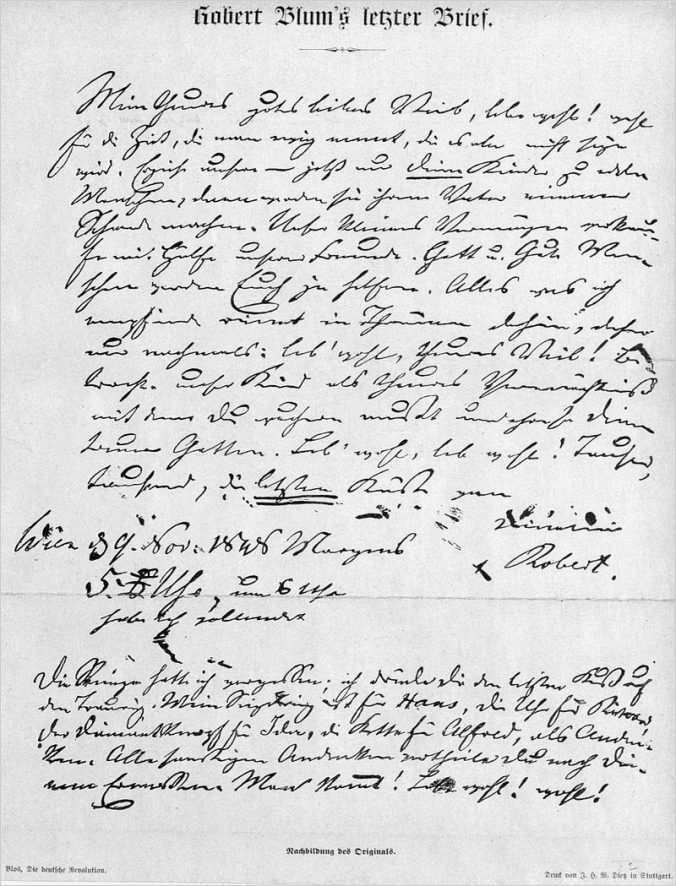 Robert Blum's letzter Brief.
Mein theures gutes liebes Weib, lebe wohl! wohl
für die Zeit, die man ewig nennt, die es aber nicht sein
wird. Erziehe unsere — jetzt nur Deine Kinder zu edlen
Menschen, dann werden sie ihrem Vater nimmer
Schande machen. Unser kleines Vermögen verkau-
fe mit Hülfe unserer Freunde. Gott u. gute Men-
schen werden Euch ja helfen. Alles was ich
empfinde rinnt in Thränen dahin, daher
nur nochmals: leb' wohl, theures Weib! Be-
trachte unsere Kinder als theures Vermächtniß
mit dem Du wuchern mußt und ehre so Deinen
treuen Gatten. Leb' wohl, leb wohl! Tausend,
tausend, die letzten Küsse von
Deinem
Wien d 9. Nov: 1848 Morgens
Robert.
5 Uhr, um 6 Uhr
habe ich vollendet
Die Ringe hatte ich vergessen; ich drücke Dir den letzten Kuß auf
den Trauring. Mein Siegelring ist für Hans, die Uhr für Richard,
der Diamantknopf für Ida, die Kette für Alfred, als Anden-
ken. Alle sonstigen Andenken vertheile Du nach Dei-
nem Ermessen. Man kommt! Lebe wohl! wohl!
Nachbildung des Originals.
Blos, Die deutsche Revolution.
Druck von J. H. W. Dietz in Stuttgart.